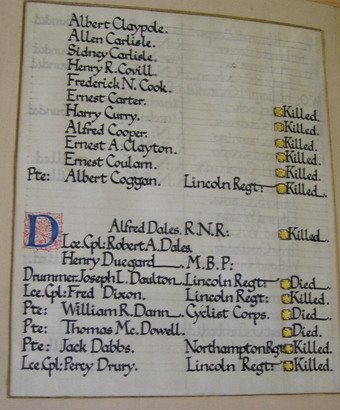 Albert Claypole.
Allen Carlisle.
Sidney Carlisle.
Henry R. Covill.
Frederick N. Cook.
Ernest Carter. Killed.
Harry Curry. Killed.
Alfred Cooper. Killed.
Ernest A. Clayton. Killed.
Ernest Coulam. Killed.
Pte: Albert Coggan. Lincoln Regt: Killed.
D
Alfred Dales. R.N.R: Killed.
Lce.Cpl: Robert A. Dales.
Henry Duegard M.B.P:
Drummer. Joseph L. Daulton Lincoln Regt: Died.
Lce.Cpl: Fred Dixon. Lincoln Regt: Killed.
Pte: William R. Dann. Cyclist Corps. Died.
Pte: Thomas Mc. Dowell. Died.
Pte: Jack Dabbs. Northampton Rgt Killed.
Lce.Cpl: Percy Drury. Lincoln Regt: Killed.